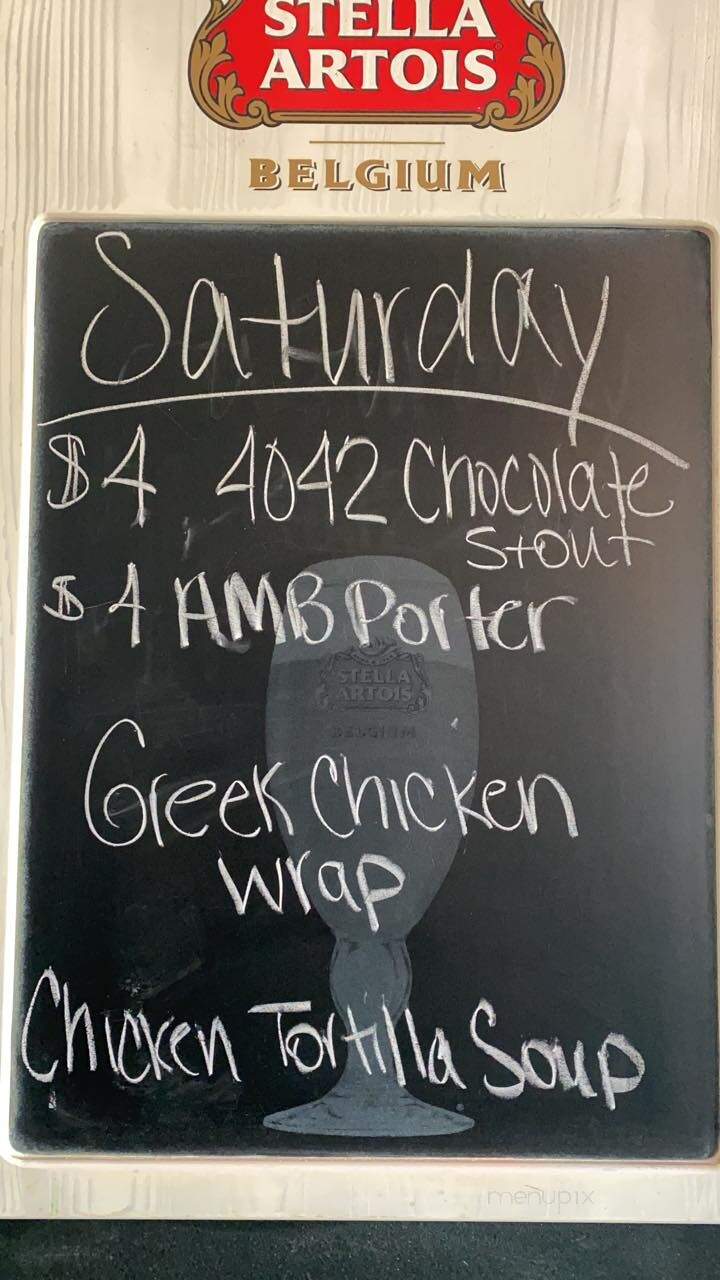 STELLA
ARTOIS
BELGIUM
Saturday
$4 4042 Chocolate
Stout
$4 AMB Porter
STELLA
ARTOIS
BELGIUM
Greek Chicken
wrap
Chicken Tortilla Soup
menupix